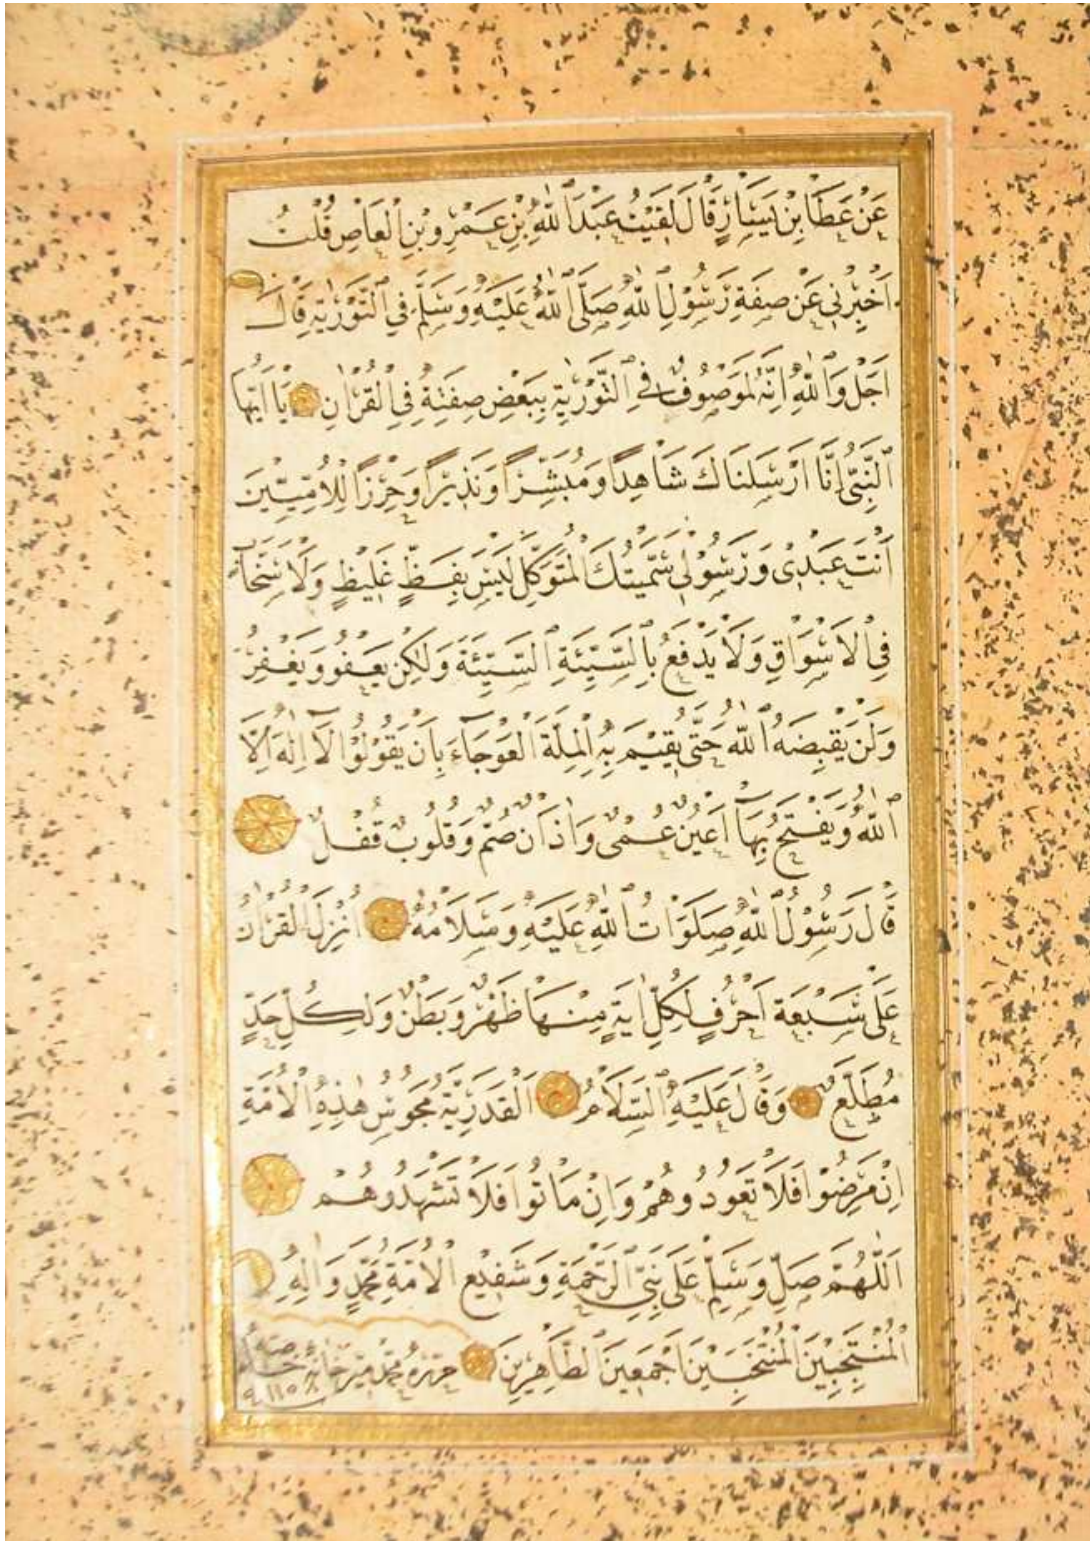 عَنْ عَطَا بْنِ يَسَارٍ قَالَ لَقِيتُ عَبْدَ اللّٰهِ بْنِ عَمْرِو بْنِ الْعَاصِ قُلْتُ
اَخْبِرْنِي عَنْ صِفَةِ رَسُولِ اللّٰهِ صَلَّى اللّٰهُ عَلَيْهِ وَسَلَّمَ فِي التَّوْرٰيةِ قَالَ
اَجَلْ وَاللّٰهِ اِنَّهُ لَمَوْصُوفٌ فِي التَّوْرٰيةِ بِبَعْضِ صِفَتِهُ فِي الْقُرْاٰنِ يَا اَيُّهَا
النَّبِيُّ اِنَّا اَرْسَلنَاكَ شَاهِدًا وَمُبَشِّرًا وَنَذِيرًا وَحِرْزًا لِلْاُمِّيِّينَ
اَنْتَ عَبْدِى وَرَسُولِى سَمَّيْتُكَ الْمُتَوَكِّلَ لَيْسَ بِفَظٍّ غَلِيظٍ وَلَا سَخَّابٍ
فِي الْاَسْوَاقِ وَلَا يَدْفَعُ بِالسَّيِّئَةِ السَّيِّئَةَ وَلٰكِنْ يَعْفُو وَيَغْفِرُ
وَلَنْ يَقْبِضَهُ اللّٰهُ حَتّٰى يُقِيْمَ بِهِ الْمِلَّةَ الْعَوْجَآءَ بِاَنْ يَقُوْلُوْا لَآ اِلٰهَ اِلَّا
اللّٰهُ وَيَفْتَحُ بِهَآ اَعْيُنٌ عُمْىٌ وَاٰذَانٌ صُمٌّ وَقُلُوبٌ قُفْلٌ
قَالَ رَسُوْلُ اللّٰهِ صَلَوَاتُ اللّٰهِ عَلَيْهِ وَسَلَامُهُ اُنْزِلَ الْقُرْاٰنُ
عَلَى سَبْعَةِ اَحْرُفٍ لِكُلِّ اٰيَةٍ مِنْهَا ظَهْرٌ وَبَطْنٌ وَلِكُلِّ حَدٍّ
مُطَّلَعٌ وَقَالَ عَلَيْهِ السَّلَامُ اَلْقَدَرِيَّةُ مَجُوسُ هٰذِهِ الْاُمَّةِ
اِنْ مَرِضُوْا فَلَا تَعُودُوهُمْ وَاِنْ مَاتُوا فَلَا تَشْهَدُوهُمْ
اَللّٰهُمَّ صَلِّ وَسَلِّمْ عَلَى نَبِيِّ الرَّحْمَةِ وَشَفِيْعِ الْاُمَّةِ مُحَمَّدٍ وَاٰلِهِ
الْمُنْتَجَبِيْنَ الْمُنْتَخَبِيْنَ اَجْمَعِينَ الطَّاهِرِينَ حرره محمد
١١٥٨